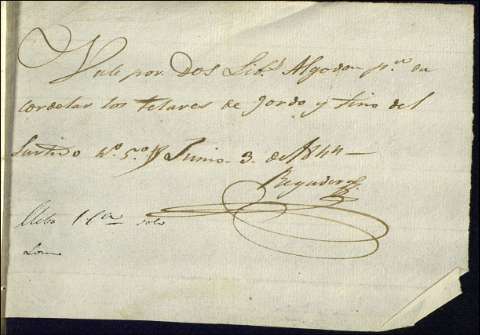 Vale por Dos Lib.s Algodon p.a en
cordelar los Telares de Gordo y fino del
Surtido N.o 5.o y Junio 3. de 1844
Regadera
Llebo 1 l.a solo